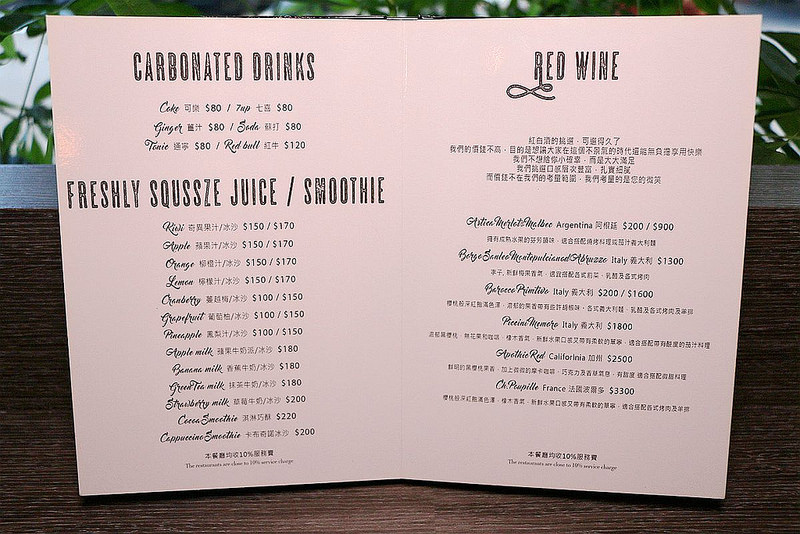 CARBONATED DRINKS
Coke 可樂 $80 / 7up 七喜 $80
Ginger 薑汁 $80 / Soda 蘇打 $80
Tonic 通寧 $80 / Red bull 紅牛 $120
FRESHLY SQUSSZE JUICE / SMOOTHIE
Kiwi 奇異果汁/冰沙 $150 / $170
Apple 蘋果汁/冰沙 $150 / $170
Orange 柳橙汁/冰沙 $150 / $170
Lemon 檸檬汁/冰沙 $150 / $170
Cranberry 蔓越梅/冰沙 $100 / $150
Grapefruit 葡萄柚/冰沙 $100 / $150
Pineapple 鳳梨汁/冰沙 $100 / $150
Apple milk 蘋果牛奶派/冰沙 $180
Banana milk 香蕉牛奶/冰沙 $180
GreenTea milk 抹茶牛奶/冰沙 $180
Strawberry milk 草莓牛奶/冰沙 $200
CocoaSmoothie 淇淋巧酥 $220
CappuccinoSmoothie 卡布奇諾冰沙 $200
本餐廳均收10%服務費
The restaurants are close to 10% service charge
RED WINE
紅白酒的挑選，可選得久了
我們的價錢不高，目的是想讓大家在這個不景氣的時代還能無負擔享用快樂
我們不想給你小確幸，而是大大滿足
我們挑選口感層次豐富、扎實細膩
而價錢不在我們的考量範圍，我們考量的是您的微笑
ArticaMerlotMalbec Argentina 阿根廷 $200 / $900
擁有成熟水果的芬芳韻味，適合搭配燒烤料理或茄汁義大利麵
BorgoSanleoMontepulcianod'Abruzzo Italy 義大利 $1300
李子, 新鮮梅果香氣，適宜搭配各式前菜、乳酪及各式烤肉
BaroccoPrimitivo Italy 義大利 $200 / $1600
PicciniMemoro Italy 義大利 $1800
ApothicRed Califorinia 加州 $2500
Ch.Poupille France 法國波爾多 $3300
櫻桃般深紅飽滿色澤，橡木香氣，新鮮水果口感又帶有柔軟的單寧，適合搭配各式烤肉及羊排
本餐廳均收10%服務費
The restaurants are close to 10% service charge